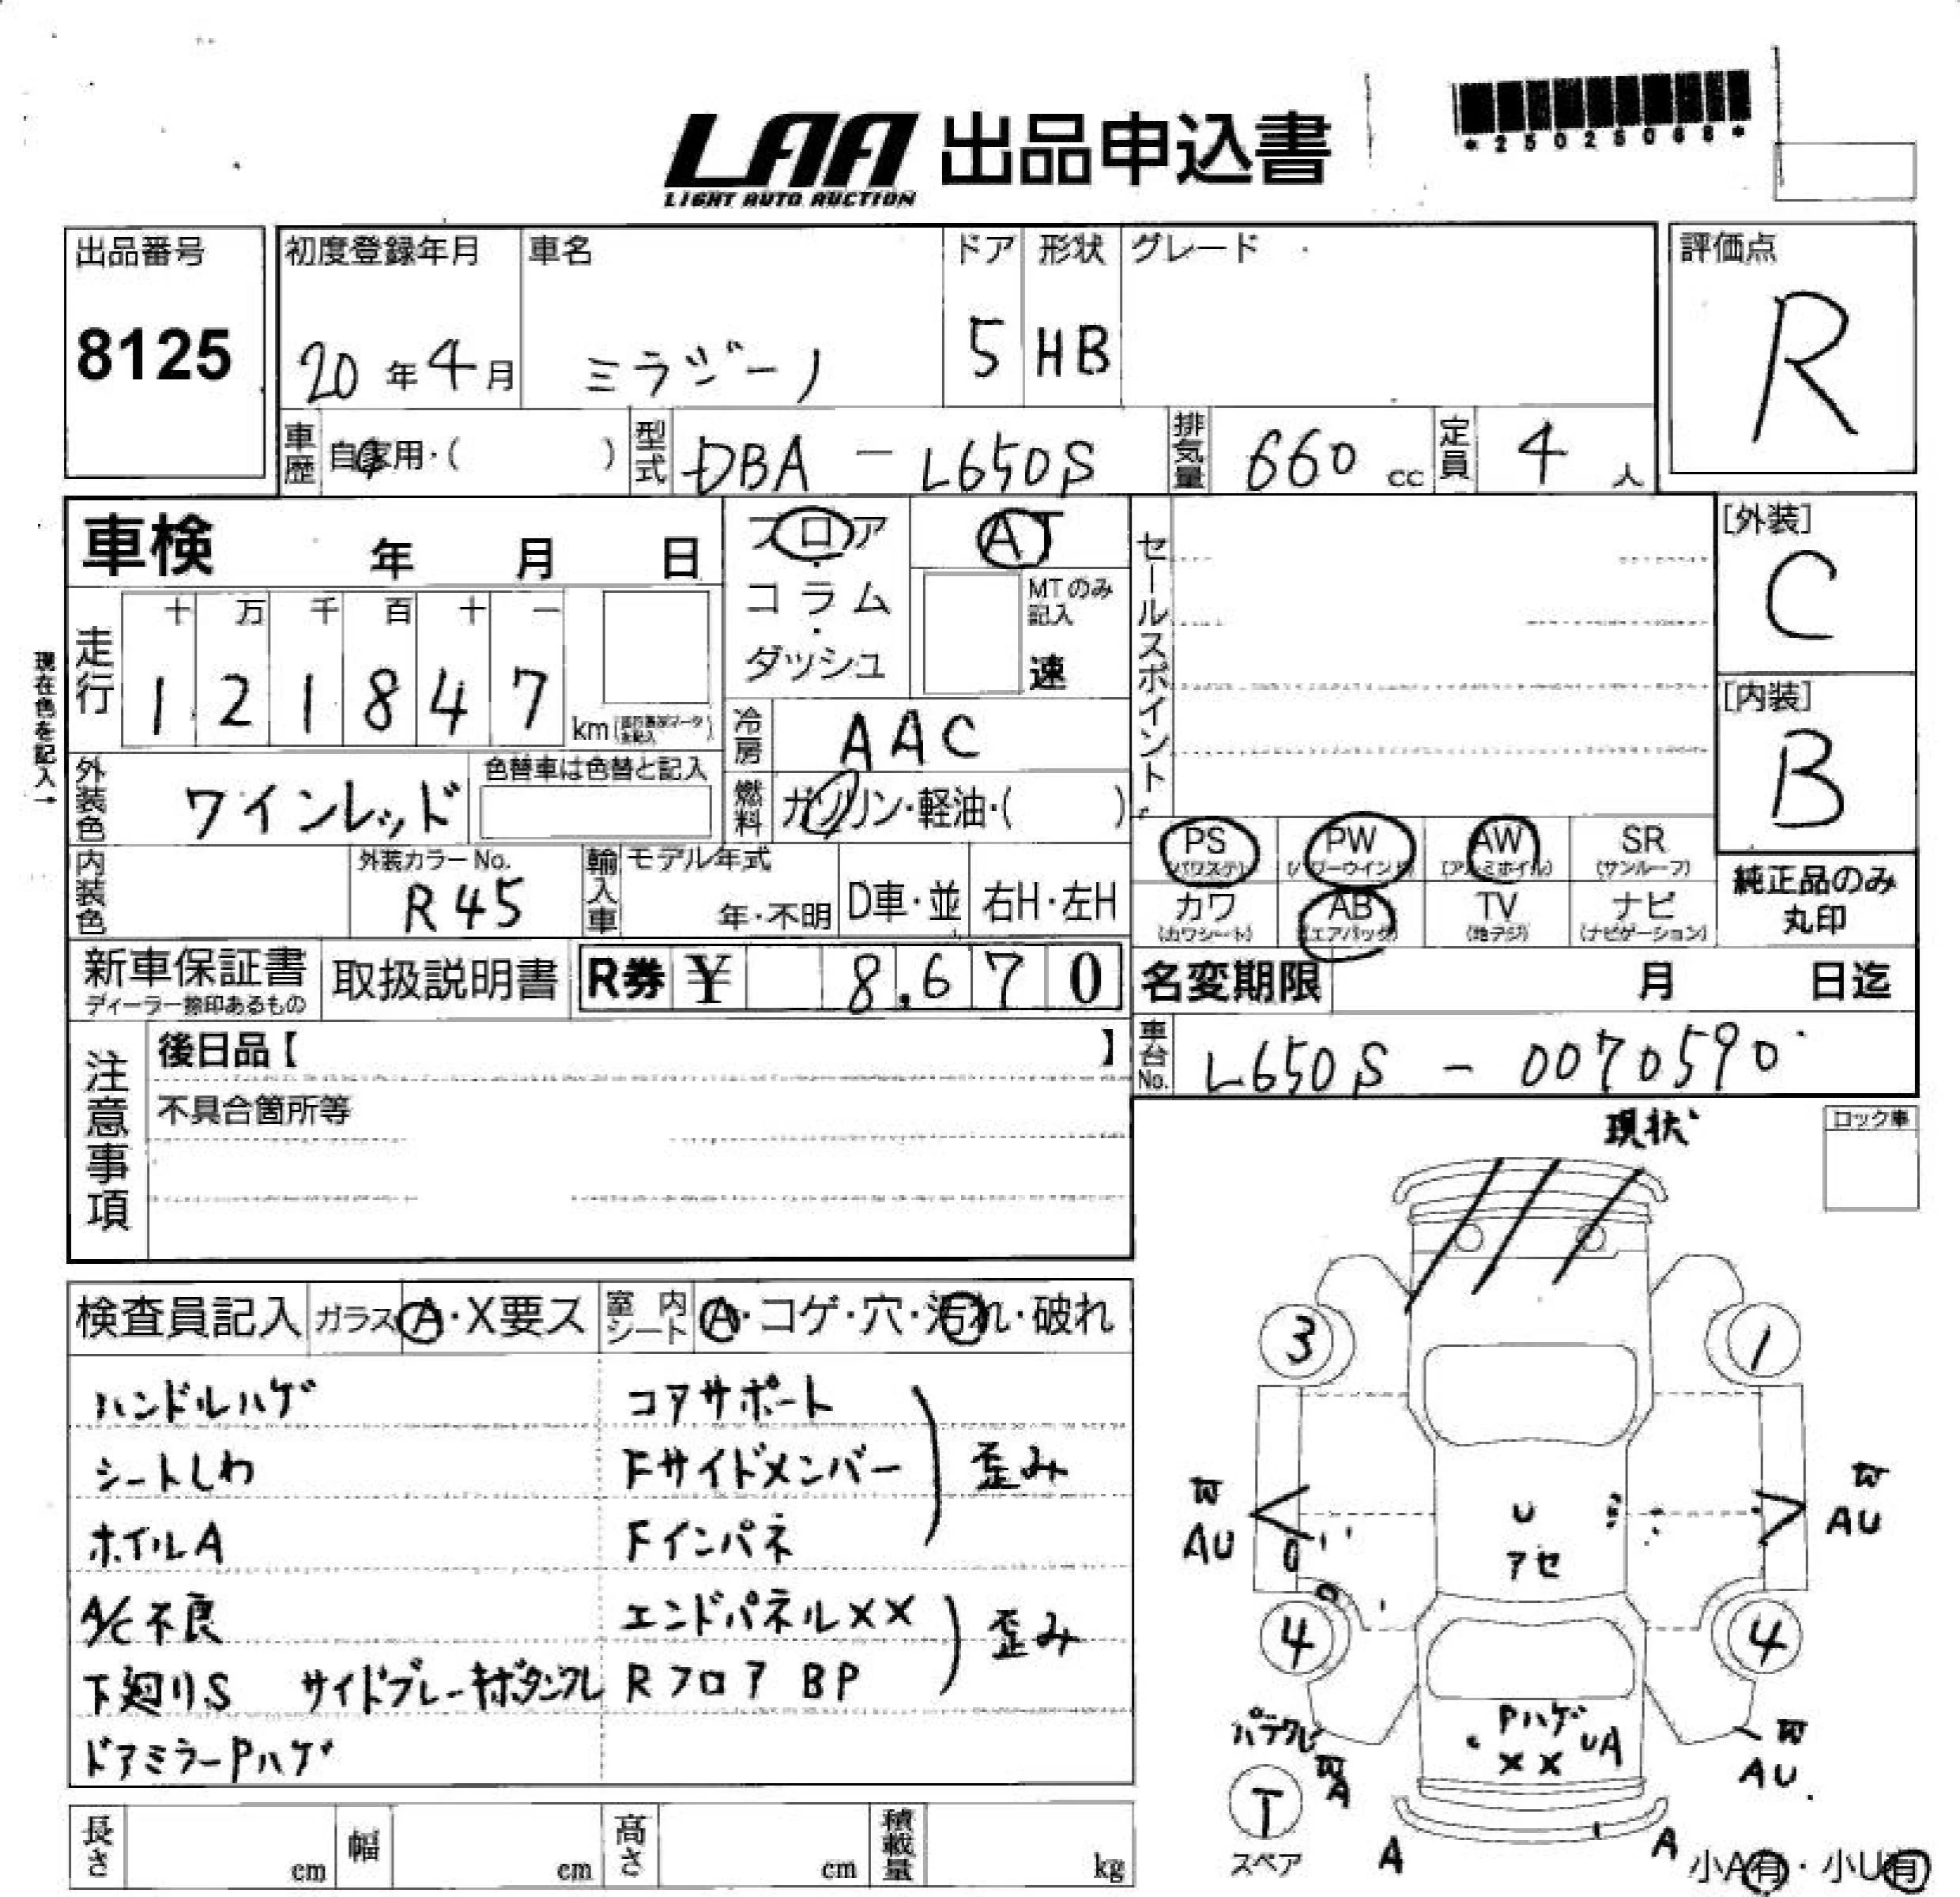 LAA 出品申込書
LIGHT AUTO AUCTION
*25025068*
出品番号
8125
初度登録年月
20年4月
車名
ミラジーノ
ドア
5
形状
HB
グレード
評価点
R
車歴 自家用・( )
型式 DBA - L650S
排気量 660 cc
定員 4 人
車検 年 月 日
フロア・コラム・ダッシュ
AT
MTのみ記入
速
セールスポイント
[外装]
C
[内装]
B
現在色を記入→
走行
十 万 千 百 十 一
1 2 1 8 4 7
km
冷房 AAC
外装色 ワインレッド
色替車は色替と記入
燃料 ガソリン・軽油・( )
PS (パワステ)
PW (パワーウインド)
AW (アルミホイル)
SR (サンルーフ)
カワ (カワシート)
AB (エアバッグ)
TV (地デジ)
ナビ (ナビゲーション)
純正品のみ丸印
内装色
外装カラーNo.
R45
輸入車
モデル年式
年・不明
D車・並
右H・左H
新車保証書
ディーラー捺印あるもの
取扱説明書
R券 ¥ 8,670
名変期限 月 日迄
車台No. L650S - 0070590
注意事項
後日品【 】
不具合箇所等
現状
ロック車
検査員記入
ガラス A・X要ス
室内シート A・コゲ・穴・汚れ・破れ
ハンドルハゲ
シートしわ
ホイルA
A/C不良
下廻りS サイドブレーキボタンワレ
ドアミラーPハゲ
コアサポート
Fサイドメンバー
Fインパネ
歪み
エンドパネルXX
RフロアBP
歪み
3
1
W
AU
W
AU
U
アセ
4
4
Pハゲ
XX
UA
W
A
W
AU
T
スペア
A
A
小A有・小U有
長さ cm
幅 cm
高さ cm
積載量 kg